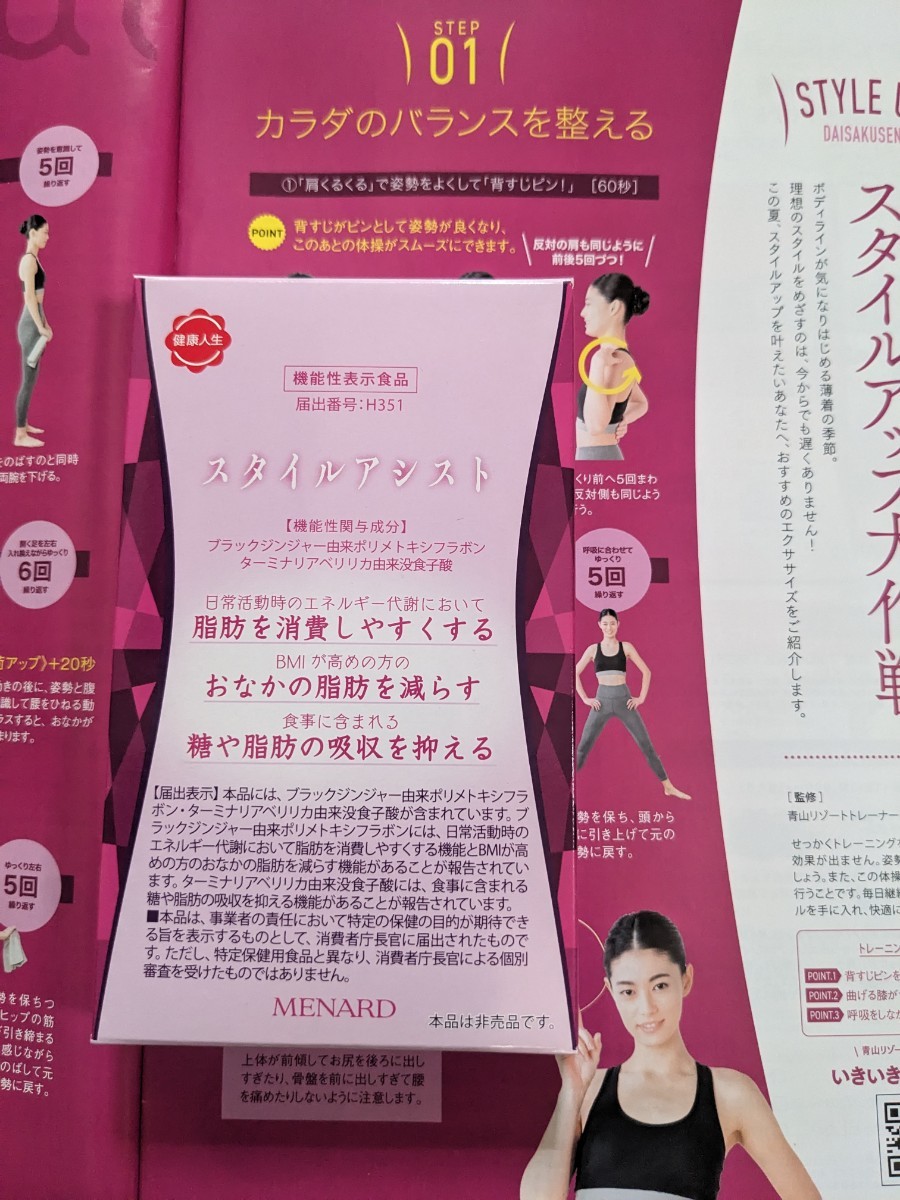 STEP
01
カラダのバランスを整える
①「肩くるくる」で姿勢をよくして「背すじピン!」 [60秒]
POINT
背すじがピンとして姿勢が良くなり、
このあとの体操がスムーズにできます。
反対の肩も同じように
前後5回づつ!
姿勢を意識して
5回
繰り返す
をのばすのと同時
両腕を下げる。
入れ替えながらゆっくり
6回
繰り返す
アップ》+20秒
きの後に、姿勢と腹
識して腰をひねる動
ラスすると、おなかが
まります。
ゆっくり左右
5回
繰り返す
勢を保ちつ
ヒップの筋
引き締まる
感じながら
のばして元
勢に戻す。
健康人生
機能性表示食品
届出番号:H351
スタイルアシスト
【機能性関与成分】
ブラックジンジャー由来ポリメトキシフラボン
ターミナリアベリリカ由来没食子酸
日常活動時のエネルギー代謝において
脂肪を消費しやすくする
BMIが高めの方の
おなかの脂肪を減らす
食事に含まれる
糖や脂肪の吸収を抑える
【届出表示】本品には、ブラックジンジャー由来ポリメトキシフラ
ボン・ターミナリアベリリカ由来没食子酸が含まれています。ブ
ラックジンジャー由来ポリメトキシフラボンには、日常活動時の
エネルギー代謝において脂肪を消費しやすくする機能とBMIが高
めの方のおなかの脂肪を減らす機能があることが報告されてい
ます。ターミナリアベリリカ由来没食子酸には、食事に含まれる
糖や脂肪の吸収を抑える機能があることが報告されています。
■本品は、事業者の責任において特定の保健の目的が期待でき
る旨を表示するものとして、消費者庁長官に届出されたもので
す。ただし、特定保健用食品と異なり、消費者庁長官による個別
審査を受けたものではありません。
MENARD
本品は非売品です。
上体が前傾してお尻を後ろに出し
すぎたり、骨盤を前に出しすぎて腰
を痛めたりしないように注意します。
くり前へ5回まわ
反対側も同じよう
う。
呼吸に合わせて
ゆっくり
5回
繰り返す
勢を保ち、頭から
に引き上げて元の
勢に戻す。
STYLE
DAISAKUSEN
スタイルアップ大作戦
ボディラインが気になりはじめる薄着の季節。
理想のスタイルをめざすのは、今からでも遅くありません!
この夏、スタイルアップを叶えたいあなたへ、おすすめのエクササイズをご紹介します。
[監修]
青山リゾートトレーナー
せっかくトレーニング
効果が出ません。姿勢
しょう。また、この体操
行うことです。毎日継続
ルを手に入れ、快適に
トレーニン
POINT.1 背すじピンを
POINT.2 曲げる膝が
POINT.3 呼吸をしな
青山リゾー
いきいき